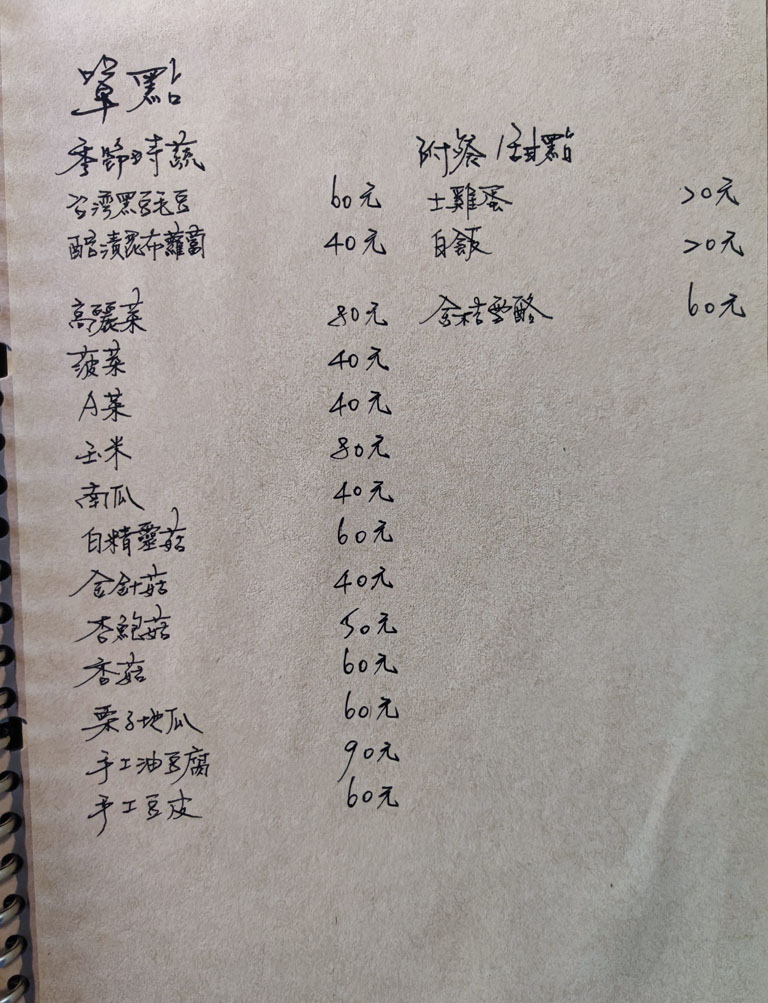 單點
季節時蔬
台灣黑豆毛豆 60元
醋漬昆布蘿蔔 40元
高麗菜 80元
菠菜 40元
A菜 40元
玉米 80元
南瓜 40元
白精靈菇 60元
金針菇 40元
杏鮑菇 50元
香菇 60元
栗子地瓜 60元
手工油豆腐 90元
手工豆皮 60元
附餐/甜點
土雞蛋 20元
白飯 20元
金桔雪酪 60元